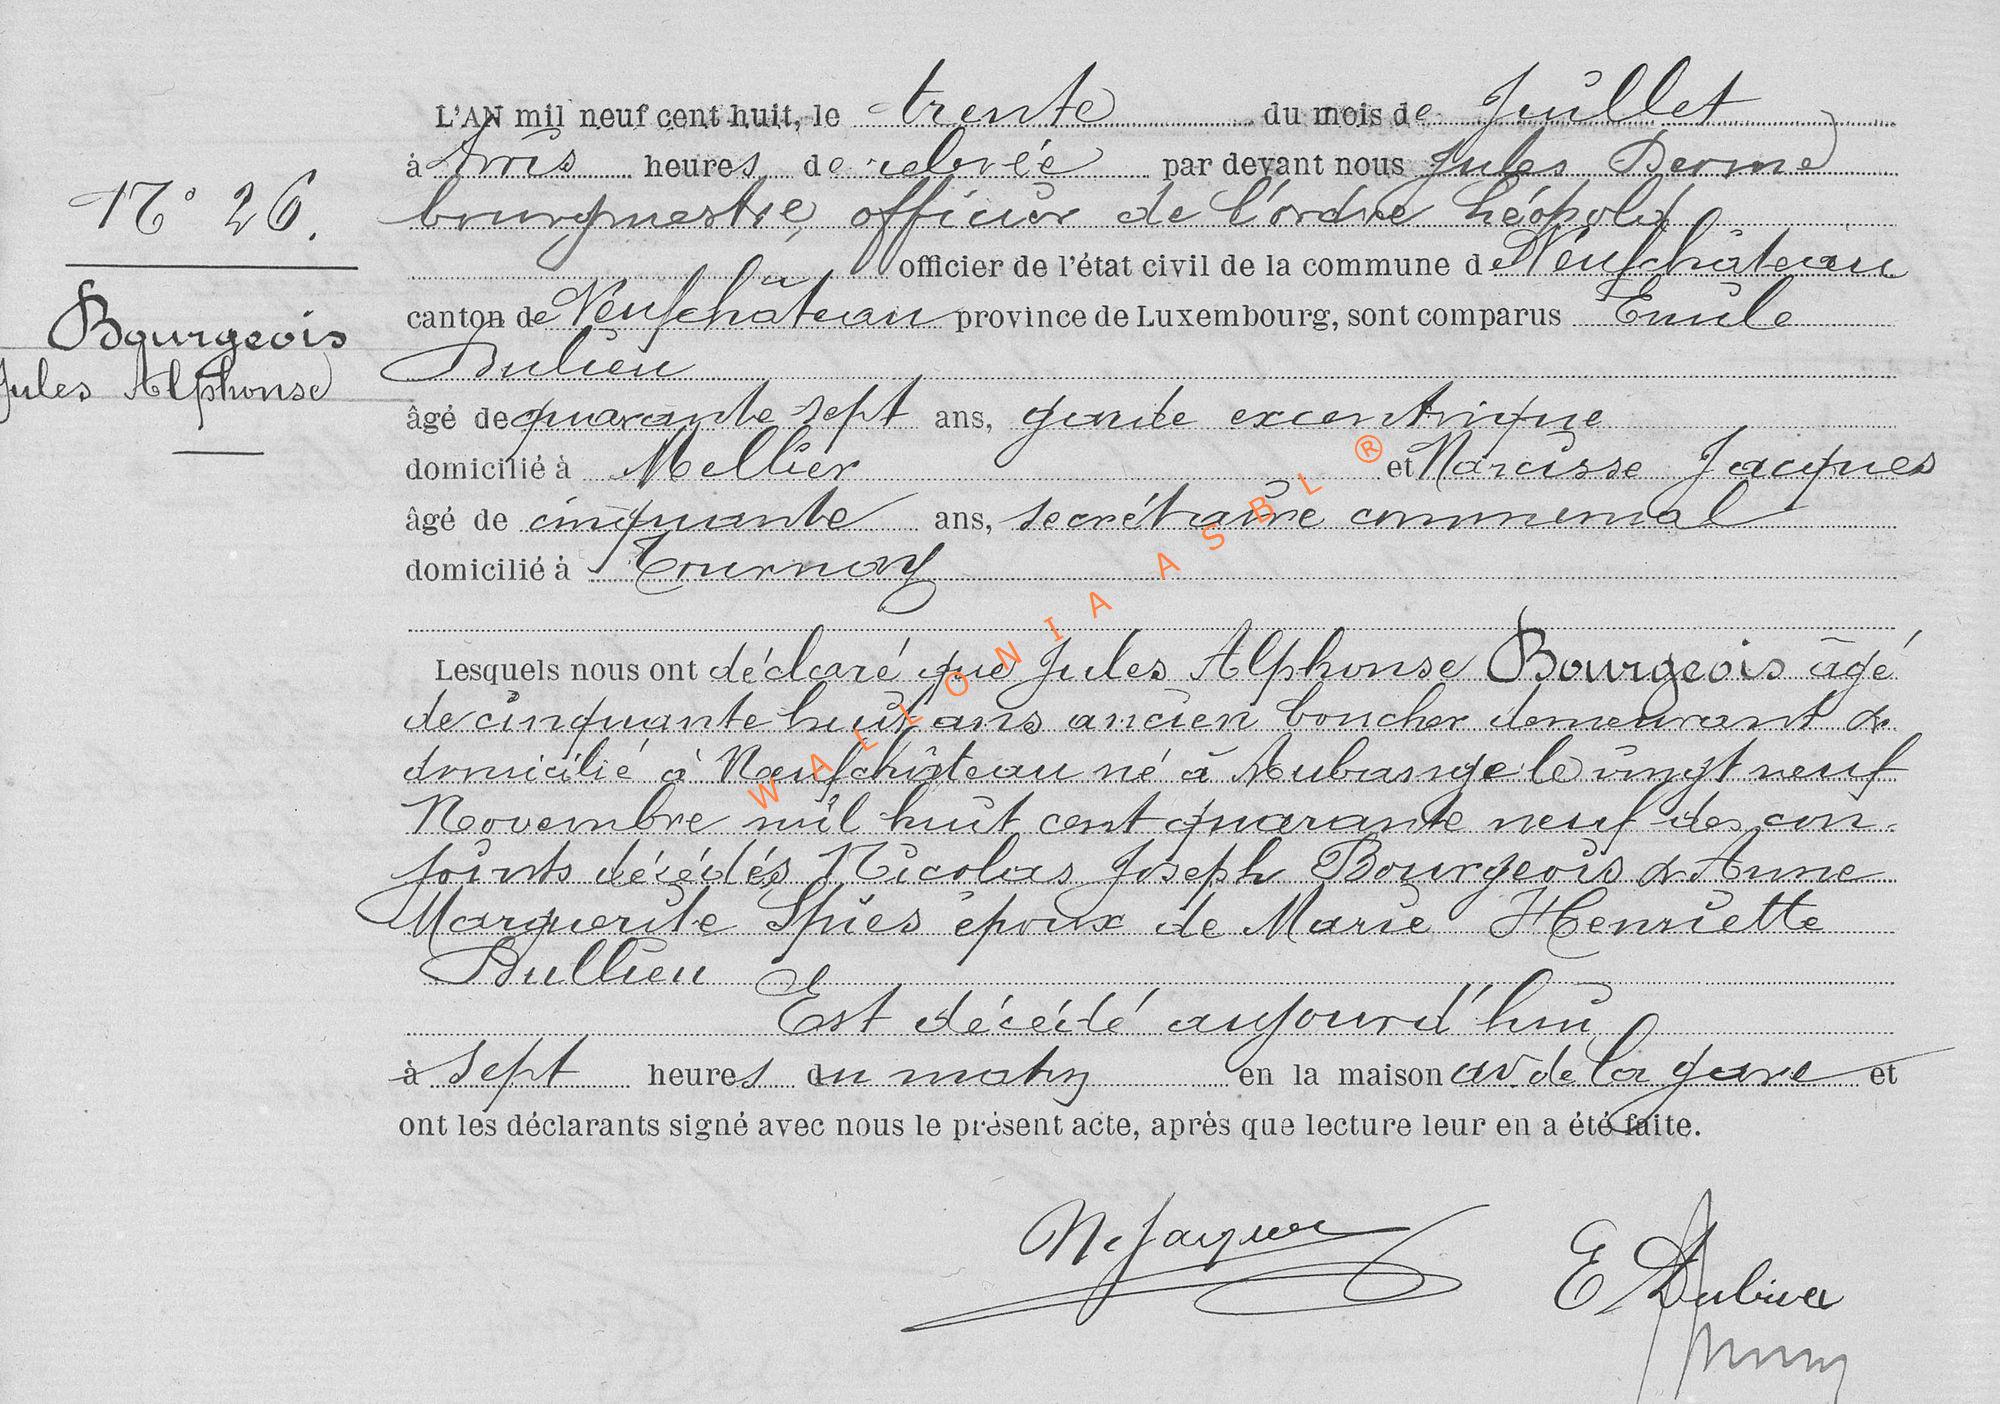 N° 26.
Bourgeois
Jules Alphonse
L'AN mil neuf cent huit, le trente du mois de Juillet
à trois heures de relevée par devant nous Jules
bourgmestre, officier de l'ordre Léopold
officier de l'état civil de la commune de Neufchâteau
canton de Neufchâteau province de Luxembourg, sont comparus Emile
âgé de quarante sept ans, garde excentrique
domicilié à Mellier et Narcisse Jacques
âgé de cinquante ans, secrétaire communal
domicilié à Tournay
Lesquels nous ont déclaré que Jules Alphonse Bourgeois âgé
de cinquante huit ans ancien boucher demeurant &
domicilié à Neufchâteau né à Aubange le vingt neuf
Novembre mil huit cent quarante neuf des con-
joints décédés Nicolas Joseph Bourgeois & Anne
Marguerite Spies époux de Marie Henriette
Est décédé aujourd'hui
à sept heures du matin en la maison av. de la gare et
ont les déclarants signé avec nous le présent acte, après que lecture leur en a été faite.
N. Jacques
E
WALLONIA ASBL ®